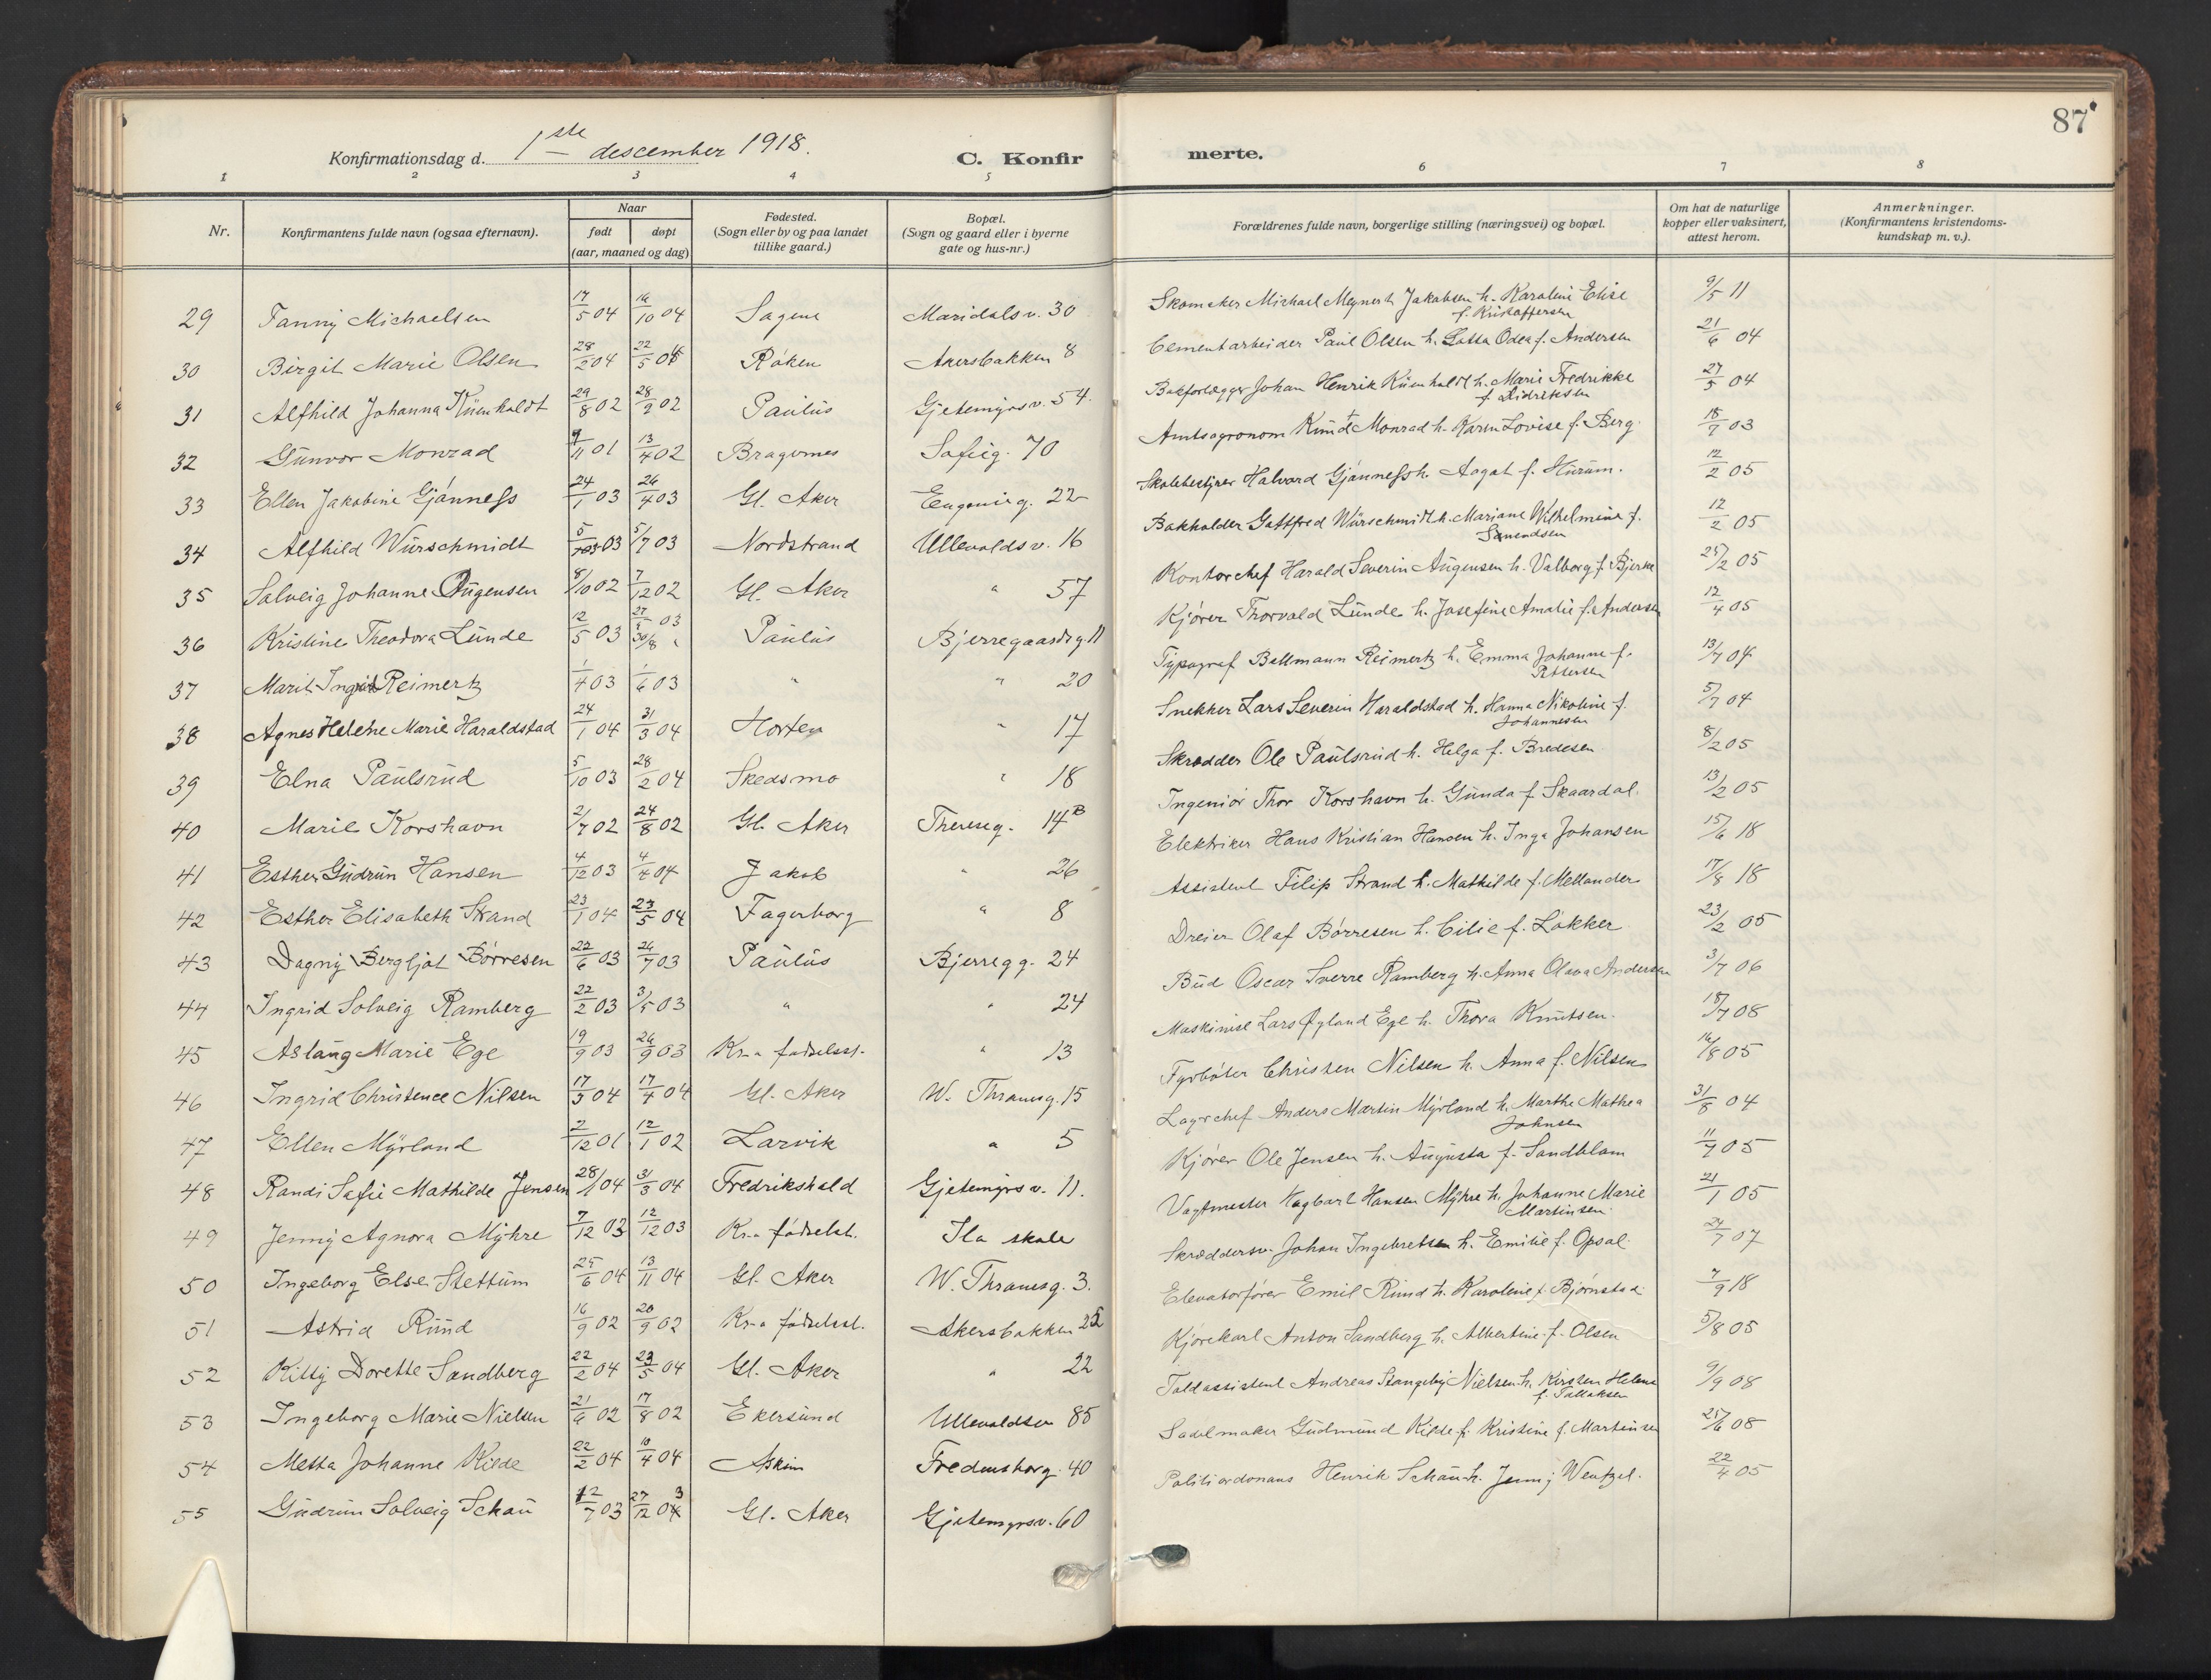 87
Konfirmationsdag d. 1ste descember 1918.
C. Konfir merte.
1 2 3 4 5 6 7 8
Nr. Konfirmantens fulde navn (ogsaa efternavn). Naar født døpt (aar, maaned og dag) Fødested. (Sogn eller by og paa landet tillike gaard.) Bopæl. (Sogn og gaard eller i byerne gate og hus-nr.) Forældrenes fulde navn, borgerlige stilling (næringsvei) og bopæl. Om hat de naturlige kopper eller vaksinert, attest herom. Anmerkninger. (Konfirmantens kristendoms- kundskap m. v.).
29 Fanny Michaelsen 17/5 04 16/10 04 Sagene Maridalsv. 30 Skomaker Michael Meynert Jakobsen h. Karoline Elise f. Kristoffersen 9/5 11
30 Birgit Marie Olsen 28/2 04 22/5 04 Røken Akersbakken 8 Cementarbeider Paul Olsen h. Lotta Odea f. Andersen 21/6 04
31 Alfhild Johanna Küenholdt 29/8 02 28/9 02 Paulus Gjetemyrsv. 54. Bokforlægger Johan Henrik Küenholdt h. Marie Fredrikke f. Didriksen 27/5 04
32 Gunvor Monrad 9/11 01 13/4 02 Bragernes Sofieg. 70 Amtsagronom Knud Monrad h. Karen Lovise f. Berg. 18/7 03
33 Ellen Jakobine Gjønness 24/1 03 26/4 03 Gl. Aker Eugenieg. 22 Skolebestyrer Halvard Gjønness h. Aagot f. Hurum. 12/2 05
34 Alfhild Würschmidt 5/ 03 5/7 03 Nordstrand Ullevoldsv. 16 Bokholder Gottfred Würschmidt h. Mariane Wilhelmine f. 12/2 05
35 Solveig Johanne Augensen 8/10 02 7/12 02 Gl. Aker " 57 Kontorchef Harald Severin Augensen h. Valborg f. Bjerke 25/2 05
36 Kristine Theodora Lunde 12/5 03 27/ 03 30/8 " Paulus Bjerregaardsg. 11 Kjører Thorvald Lunde h. Josefine Amalie f. Andersen 12/4 05
37 Marit Ingrid Reimertz 1/4 03 1/6 03 " " 20 Typograf Bellmann Reimertz h. Emma Johanne f. Pettersen 13/7 04
38 Agnes Helene Marie Haraldstad 24/1 04 31/3 04 Horten " 17 Snekker Lars Severin Haraldstad h. Hanna Nikoline f. Johannesen 5/7 04
39 Elna Paulsrud 5/10 03 28/2 04 Skedsmo " 18 Skrædder Ole Paulsrud h. Helga f. Bredesen 8/2 05
40 Marie Korshavn 2/7 02 24/8 02 Gl. Aker Thereseg. 14B Ingeniør Thor Korshavn h. Gunda f. Skaardal. 13/2 05
41 Esther Gudrun Hansen 4/12 03 4/4 04 Jakob " 26 Elektriker Hans Kristian Hansen h. Inga Johansen 15/6 18
42 Esther Elisabeth Strand 23/1 04 23/5 04 Fagerborg " 8 Assistent Filip Strand h. Mathilde f. Mellander 17/8 18
43 Dagny Bergljot Børresen 22/6 03 26/7 03 Paulus Bjerregg. 24 Dreier Olaf Børresen h. Cilie f. Løkker 23/2 05
44 Ingrid Solveig Ramberg 22/2 03 3/5 03 " " 24 Bud Oscar Sverre Ramberg h. Anna Olava Andersen 3/7 06
45 Aslaug Marie Ege 19/9 03 26/9 03 Kr.a fødselsst. " 13 Maskinist Lars Øgland Ege h. Thora Knutsen. 18/7 08
46 Ingrid Christence Nilsen 17/3 04 17/4 04 Gl. Aker W. Thranesg. 15 Fyrbøter Christen Nilsen h. Anna f. Nilsen 16/8 05
47 Ellen Myrland 2/12 01 12/1 02 Larvik " 5 Lagerchef Anders Martin Myrland h. Marthe Mathea Johnsen 31/8 04
48 Randi Sofie Mathilde Jensen 28/1 04 31/3 04 Fredrikshald Gjetemyrsv. 11. Kjører Ole Jensen h. Augusta f. Sandblom 11/7 05
49 Jenny Agnora Myhre 7/12 03 12/12 03 Kr.a fødselst. Ila skole Vagtmester Hagbart Hansen Myhre h. Johanne Marie Martinsen 21/1 05
50 Ingeborg Else Stettum 25/6 04 13/11 04 Gl. Aker W. Thranesg. 3. Skræddersv. Johan Ingebretsen h. Emilie f. Opsal 24/7 07
51 Astrid Rund 16/9 02 20/9 02 Kr.a fødselsst. Akersbakken Elevatorfører Emil Rund h. Karoline f. Bjørnstad 7/9 18
52 Kitty Dorette Sandberg 22/2 04 23/5 04 Gl. Aker " 22 Kjørekarl Anton Sandberg h. Albertine f. Olsen 5/8 05
53 Ingeborg Marie Nielsen 21/6 02 17/8 02 Ekersund Ullevoldsv 85 Toldassistent Andreas Stangeby Nielsen h. Kirsten Helene f. Tallaksen 9/9 08
54 Metta Johanne Kilde 22/2 04 10/4 04 Askim Fredensborg. 40 Sadelmaker Gudmund Kilde h. Kristine f. Martinsen 25/6 08
55 Gudrun Solveig Schau 12/7 03 27/12 03 Gl. Aker Gjetemyrsv. 60 Politiordonans Henrik Schau h. Jenny Wentzel. 22/4 05